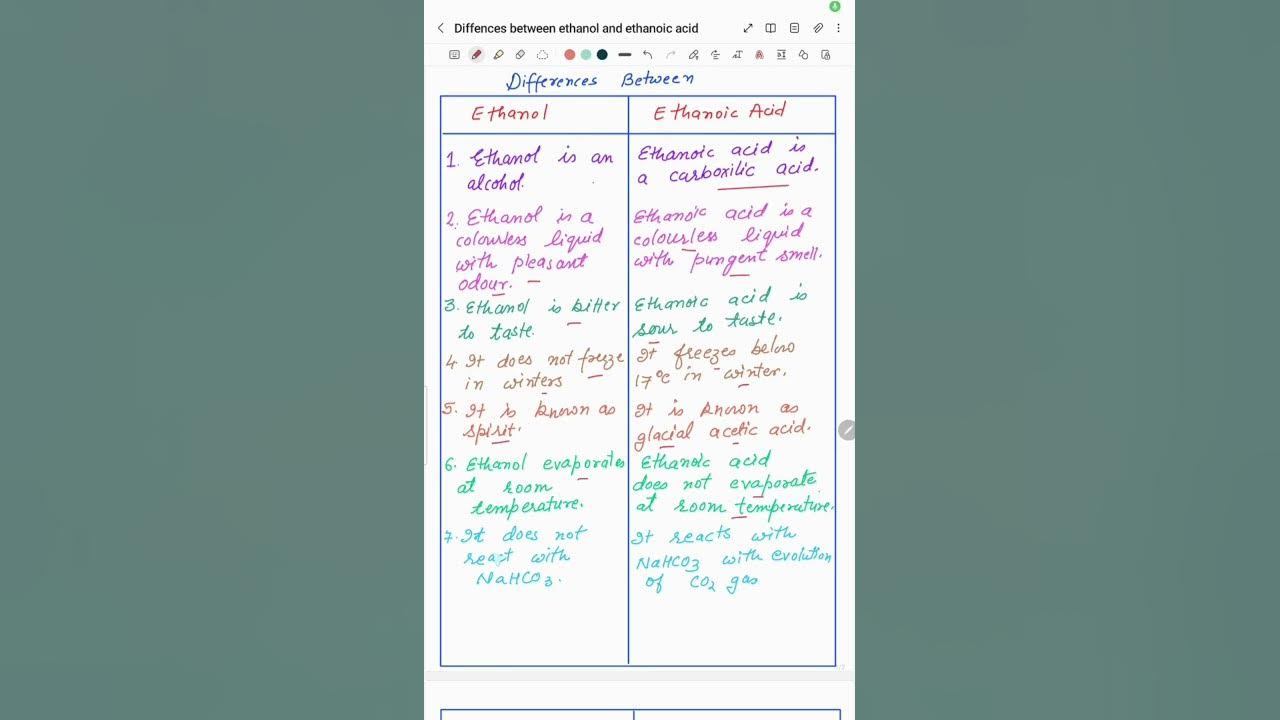 Diffences between ethanol and ethanoic acid
Differences Between
Ethanol
Ethanoic Acid
1. Ethanol is an
alcohol.
Ethanoic acid is
a carboxilic acid.
2. Ethanol is a
colourless liquid
with pleasant
odour.
Ethanoic acid is a
colourless liquid
with pungent smell.
3. Ethanol is bitter
to taste.
Ethanoic acid is
sour to taste.
4 It does not freeze
in winters
It freezes below
17°C in winter.
5. It is known as
spirit.
It is known as
glacial acetic acid.
6. Ethanol evaporates
at room
temperature.
Ethanoic acid
does not evaporate
at room temperature.
7. It does not
react with
NaHCO3.
It reacts with
NaHCO3 with evolution
of CO2 gas